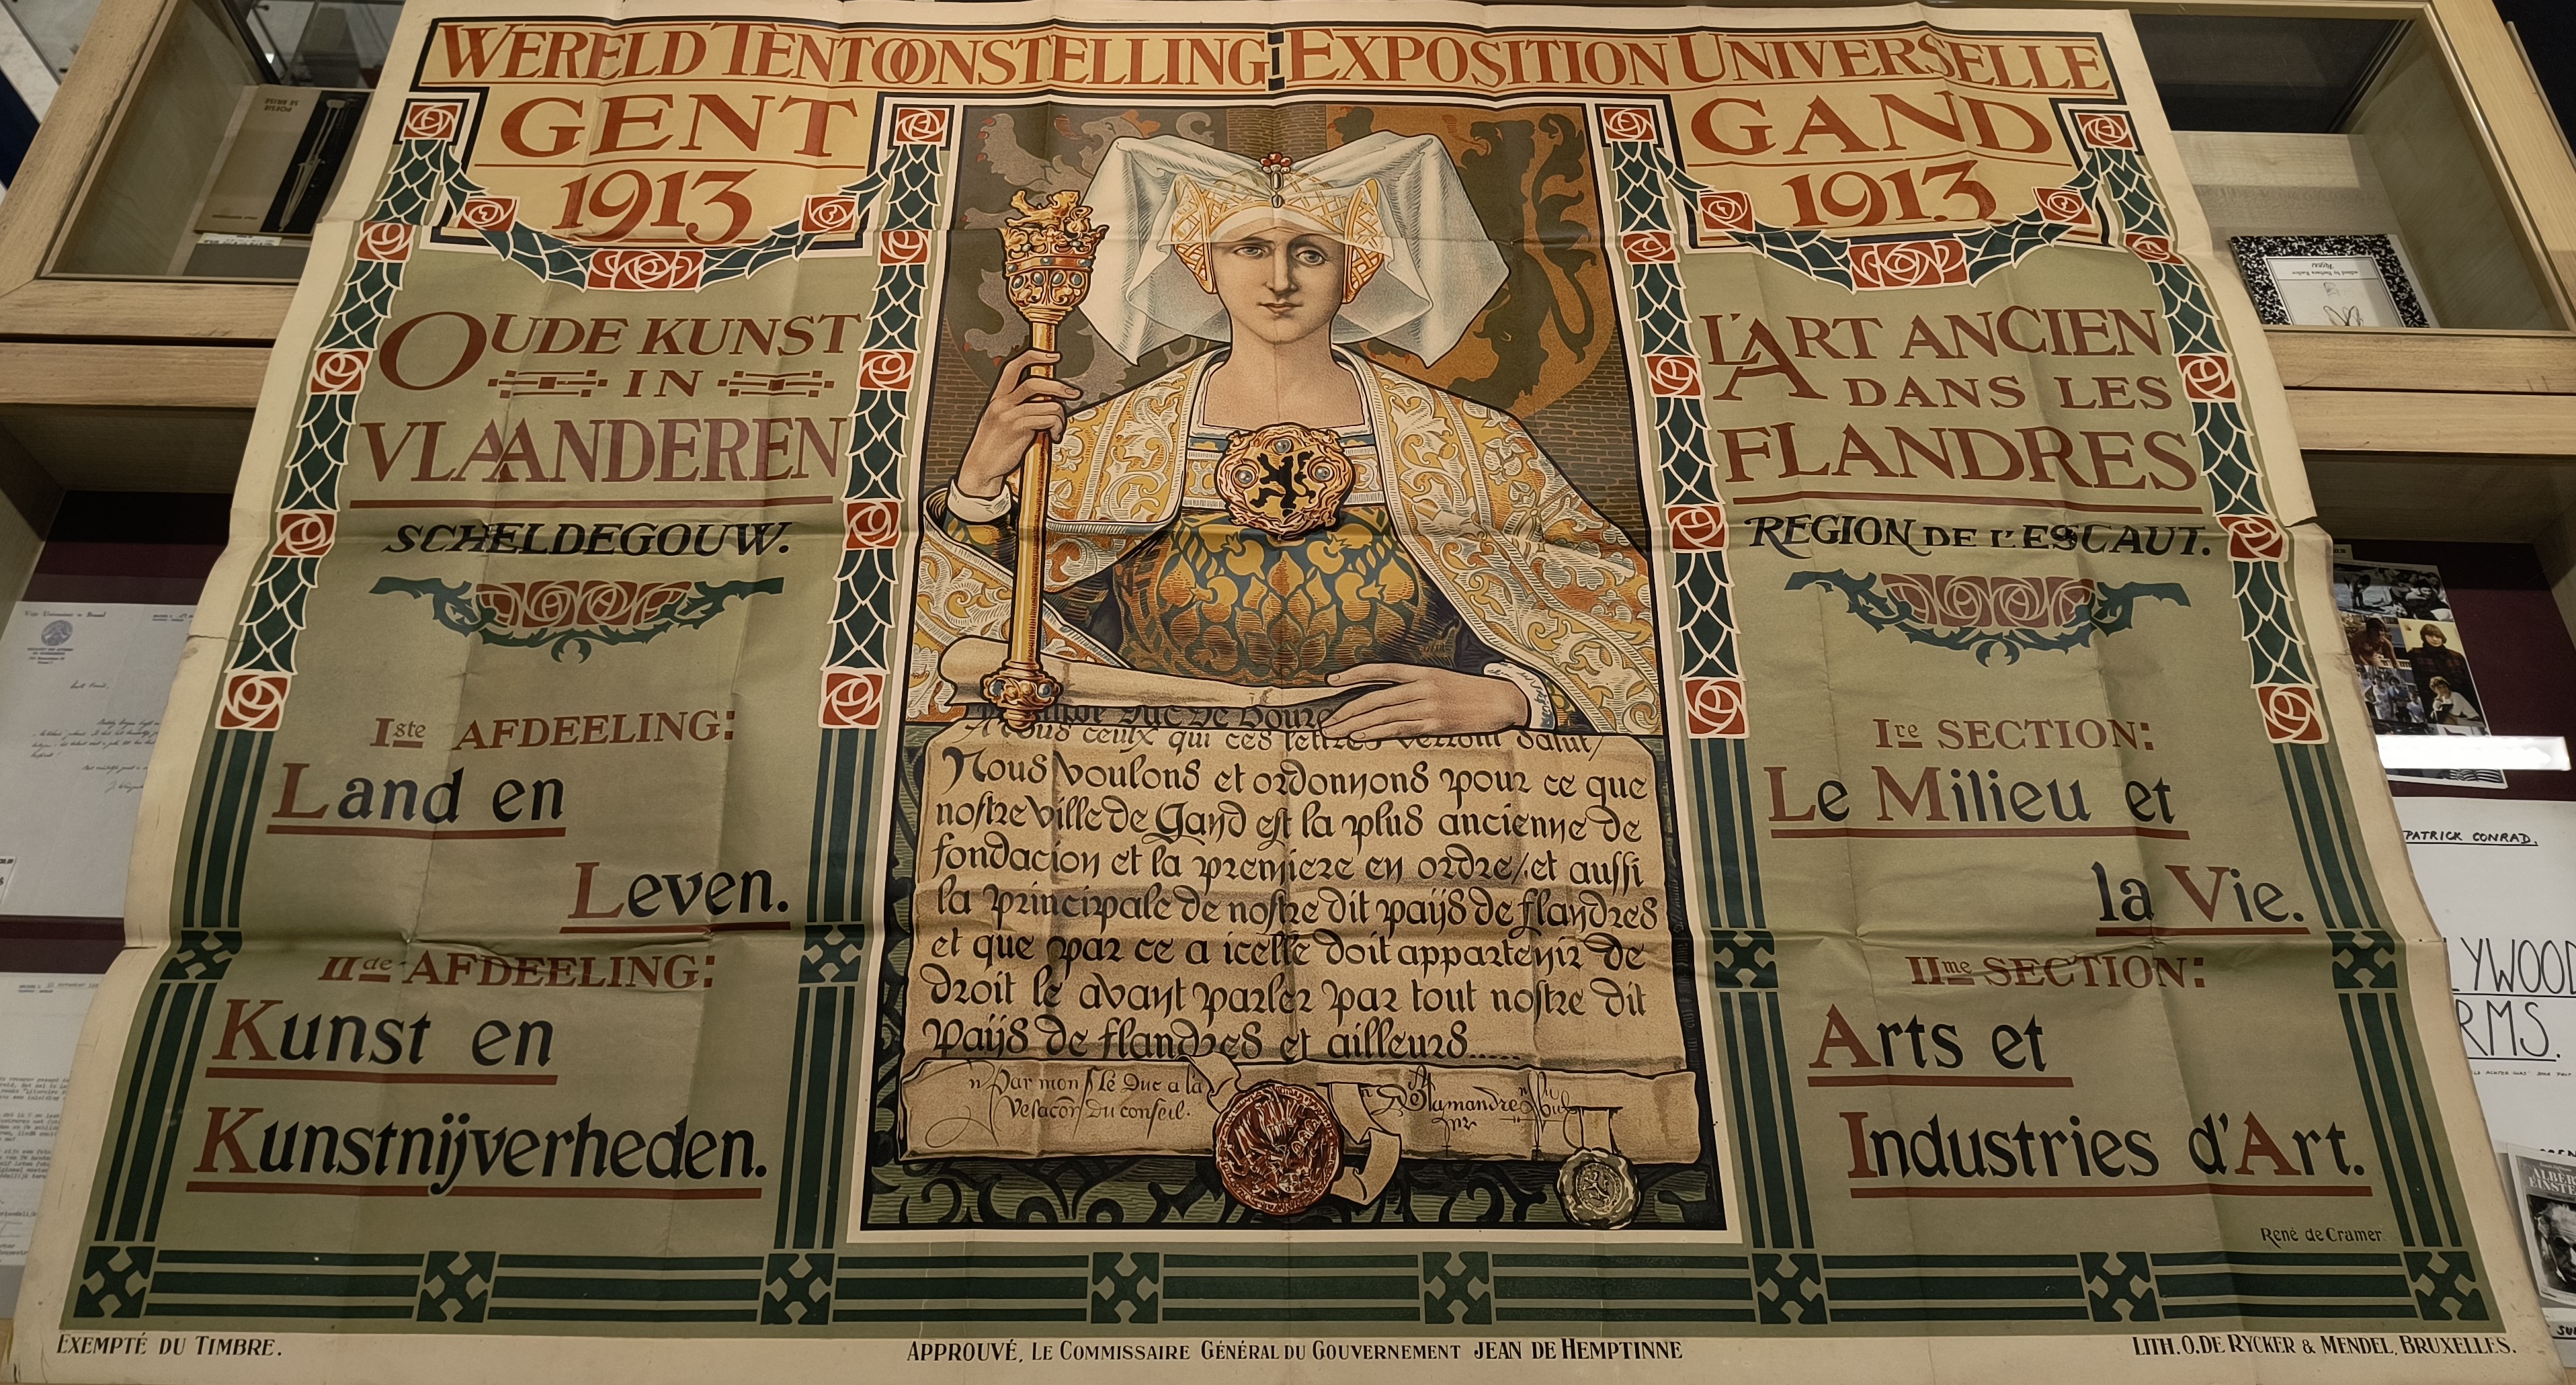 WERELD TENTOONSTELLING
GENT
1913
OUDE KUNST
IN
VLAANDEREN
SCHELDEGOUW.
Iste AFDEELING:
Land en
Leven.
IIde AFDEELING:
Kunst en
Kunstnijverheden.
A tous ceulx qui ces lettres verront salut/
Nous voulons et ordonnons pour ce que
nostre ville de Gand est la plus ancienne de
fondacion et la premiere en ordre/et aussi
la principale de nostre dit païjs de flandres
et que par ce a icelle doit appartenir de
droit le avant parler par tout nostre dit
Païjs de flandres et ailleurs.....
Par mon Le Duc a la
du conseil.
EXPOSITION UNIVERSELLE
GAND
1913
L'ART ANCIEN
DANS LES
FLANDRES
REGION DE L'ESCAUT.
Ire SECTION:
Le Milieu et
la Vie.
IIme SECTION:
Arts et
Industries d'Art.
René de Cramer
EXEMPTÉ DU TIMBRE.
APPROUVÉ, LE COMMISSAIRE GÉNÉRAL DU GOUVERNEMENT JEAN DE HEMPTINNE
LITH. O. DE RYCKER & MENDEL, BRUXELLES.
PATRICK CONRAD.